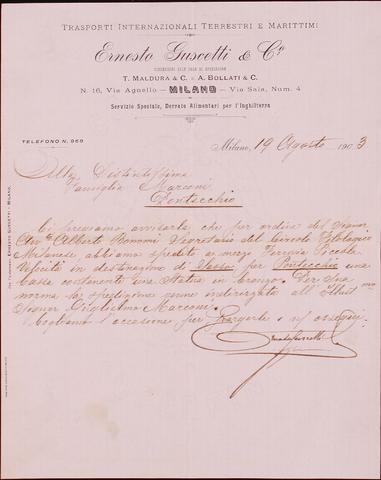 TRASPORTI INTERNAZIONALI TERRESTRI E MARITTIMI
Ernesto Guscetti & Cº
SUCCESSORI ALLE CASE DI SPEDIZIONE
T. MALDURA & C. e A. BOLLATI & C.
N. 16, Via Agnello — MILANO — Via Sala, Num. 4
Servizio Speciale, Derrate Alimentari per l'Inghilterra
TELEFONO N. 969
Milano, 19 Agosto 1903
Alla Distintissima
Famiglia Marconi
Pontecchio
Ci pregiamo avvisarla che per ordine del Signor
Alberto Bonomi Segretario del Circolo Filologico
Milanese abbiamo spedito a mezzo Ferrovia Piccola
Velocità in destinazione di Sasso per Pontecchio una
cassa contenente una Statua in bronzo. Per sua
norma la spedizione venne indirizzata all' Illust.mo
Signor Guglielmo Marconi.
Cogliamo l'occasione per
Ing. Trasporti ERNESTO GUSCETTI - MILANO.